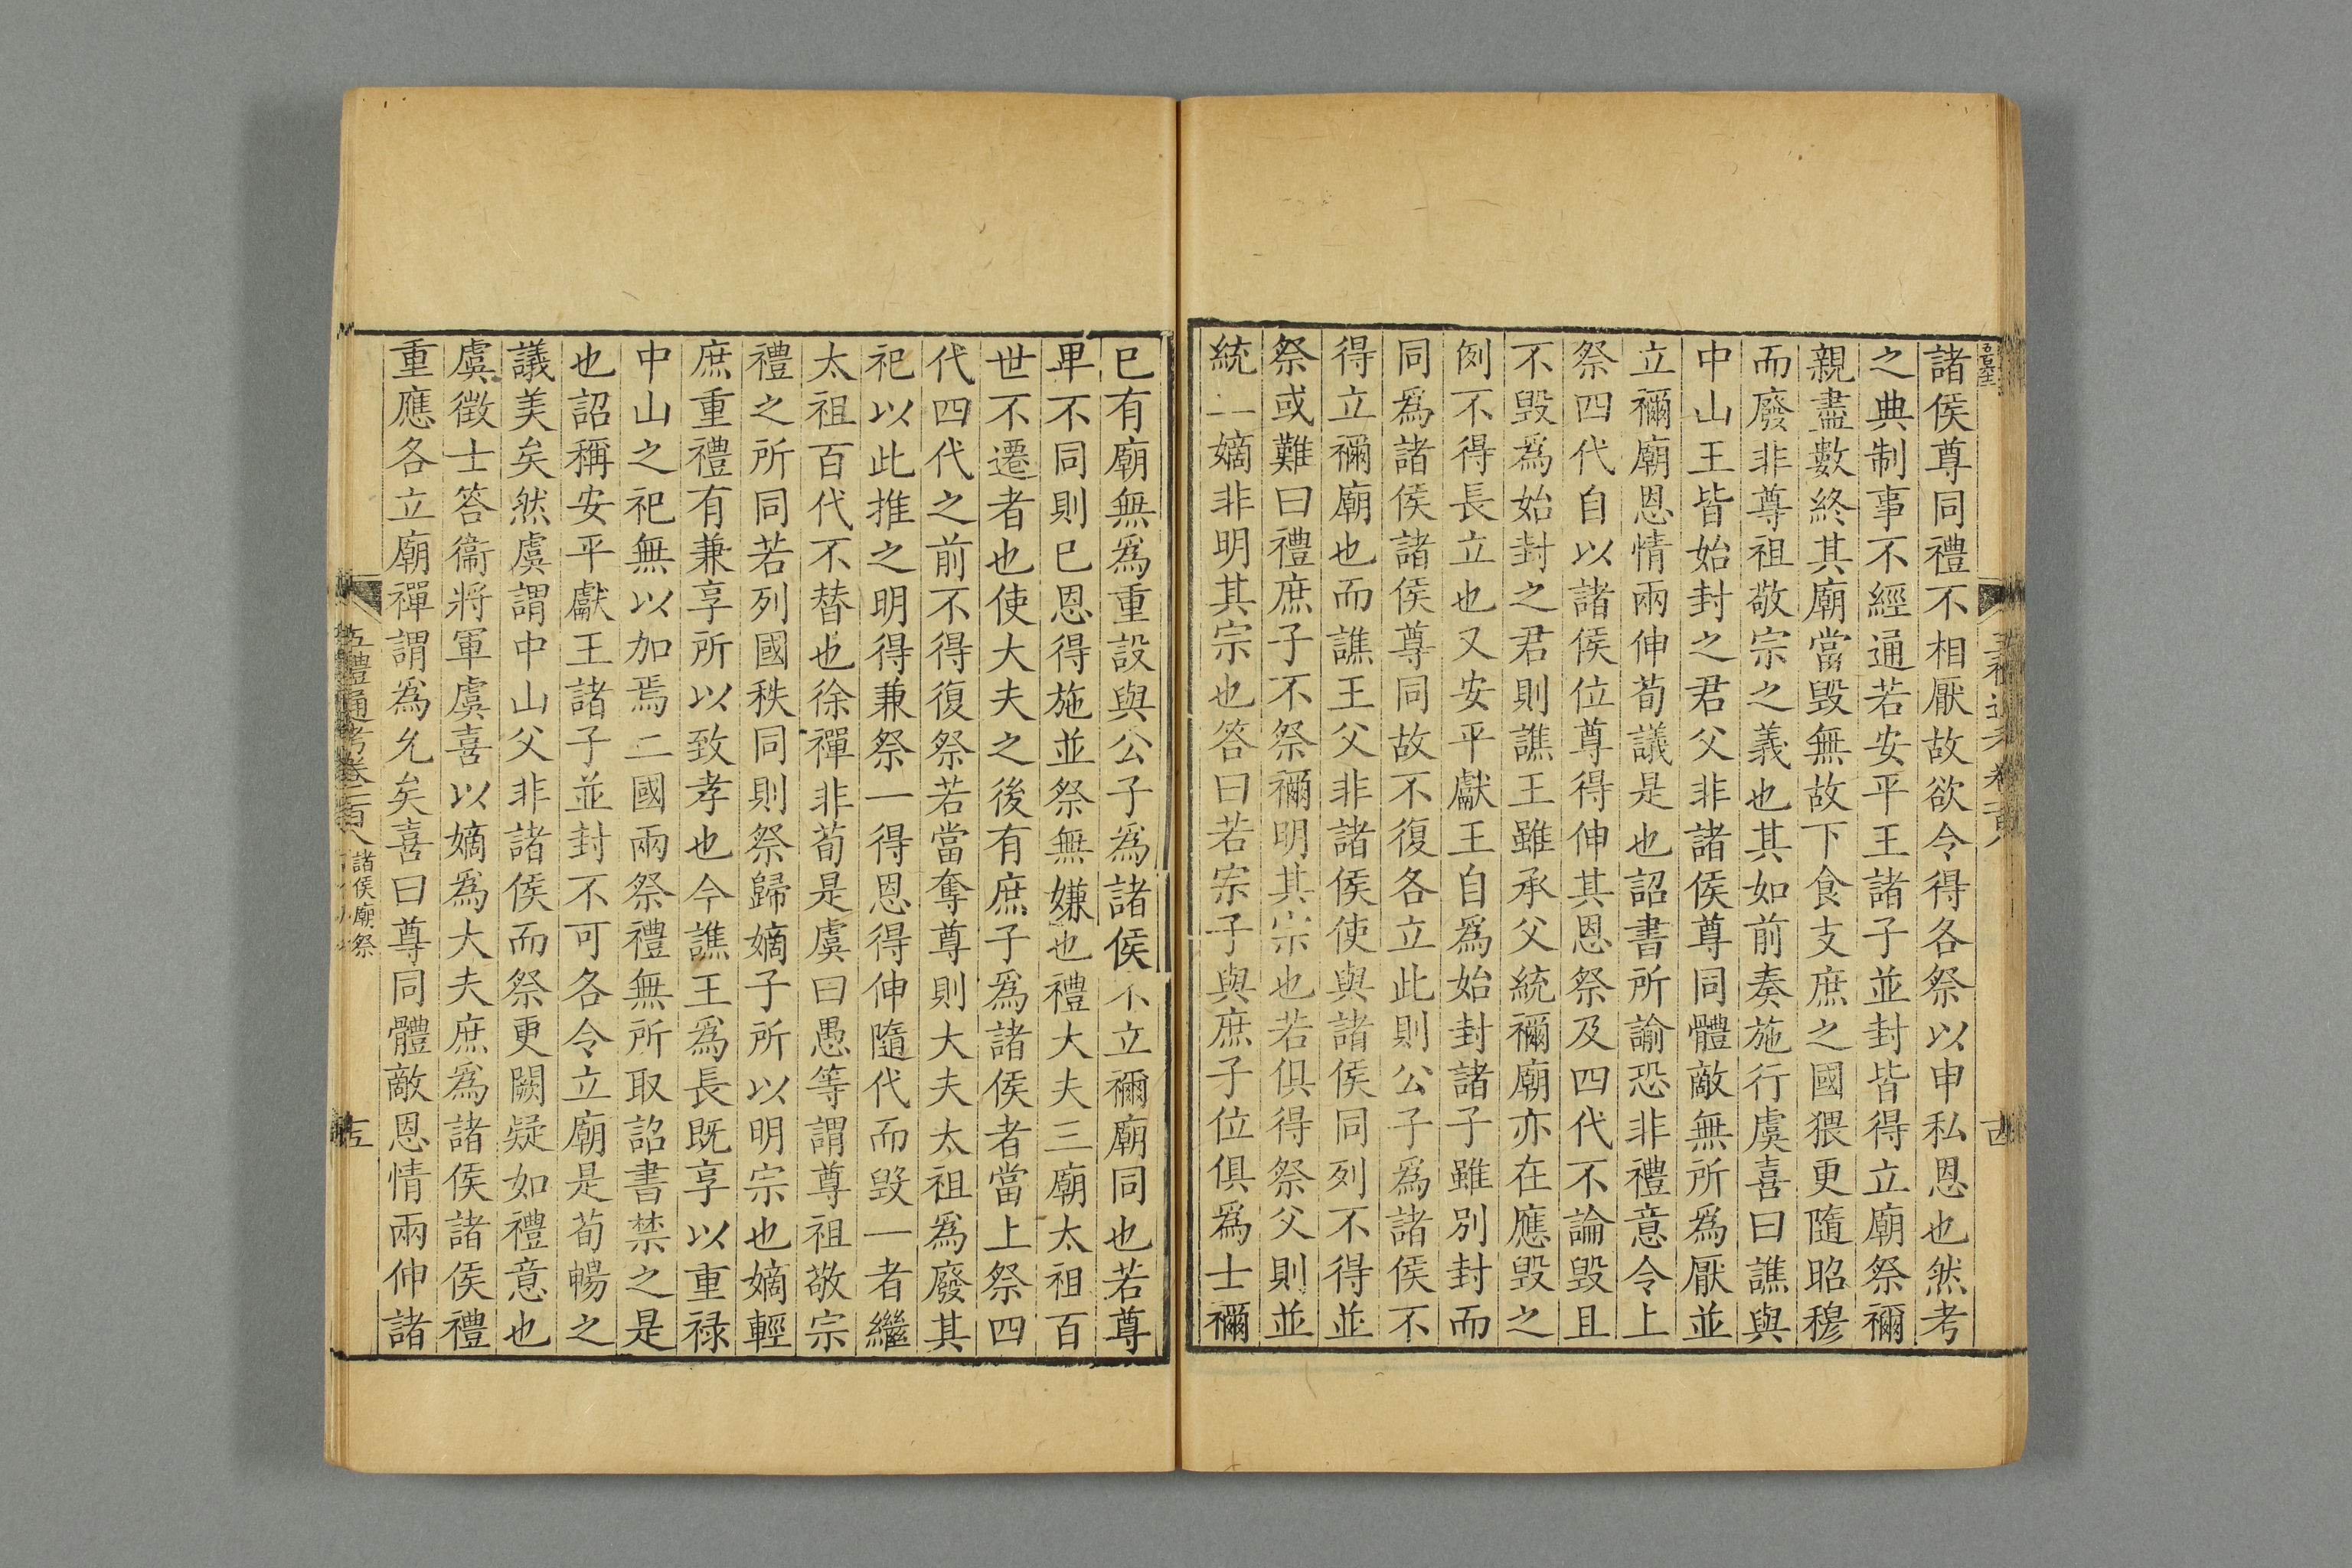 諸侯尊同禮不相厭故欲令得各祭以申私恩也然考
之典制事不經通若安平王諸子並封皆得立廟祭禰
親盡數終其廟當毁無故下食支庶之國猥更隨昭穆
而廢非尊祖敬宗之義也其如前奏施行虞喜曰譙與
中山王皆始封之君父非諸侯尊同體敵無所爲厭並
立禰廟恩情兩伸荀議是也詔書所諭恐非禮意令上
祭四代自以諸侯位尊得伸其恩祭及四代不論毁且
不毁爲始封之君則譙王雖承父統禰廟亦在應毁之
例不得長立也又安平獻王自爲始封諸子雖别封而
同爲諸侯諸侯尊同故不復各立此則公子爲諸侯不
得立禰廟也而譙王父非諸侯使與諸侯同列不得並
祭或難曰禮庶子不祭禰明其宗也若俱得祭父則並
統二嫡非明其宗也答曰若宗子與庶子位俱爲士禰
已有廟無爲重設與公子爲諸侯不立禰廟同也若尊
卑不同則已恩得施並祭無嫌也禮大夫三廟太祖百
世不遷者也使大夫之後有庶子爲諸侯者當上祭四
代四代之前不得復祭若當奪尊則大夫太祖爲廢其
祀以此推之明得兼祭一得恩得伸隨代而毁一者繼
太祖百代不替也徐禪非荀是虞曰愚等謂尊祖敬宗
禮之所同若列國秩同則祭歸嫡子所以明宗也嫡輕
庶重禮有兼享所以致孝也今譙王爲長既享以重禄
中山之祀無以加焉二國兩祭禮無所取詔書禁之是
也詔稱安平獻王諸子並封不可各令立廟是荀暢之
議美矣然虞謂中山父非諸侯而祭更闕疑如禮意也
虞徵士答衞將軍虞喜以嫡爲大夫庶爲諸侯諸侯禮
重應各立廟禪謂爲允矣喜曰尊同體敵恩情兩伸諸
五禮通考卷一百八 諸侯廟祭